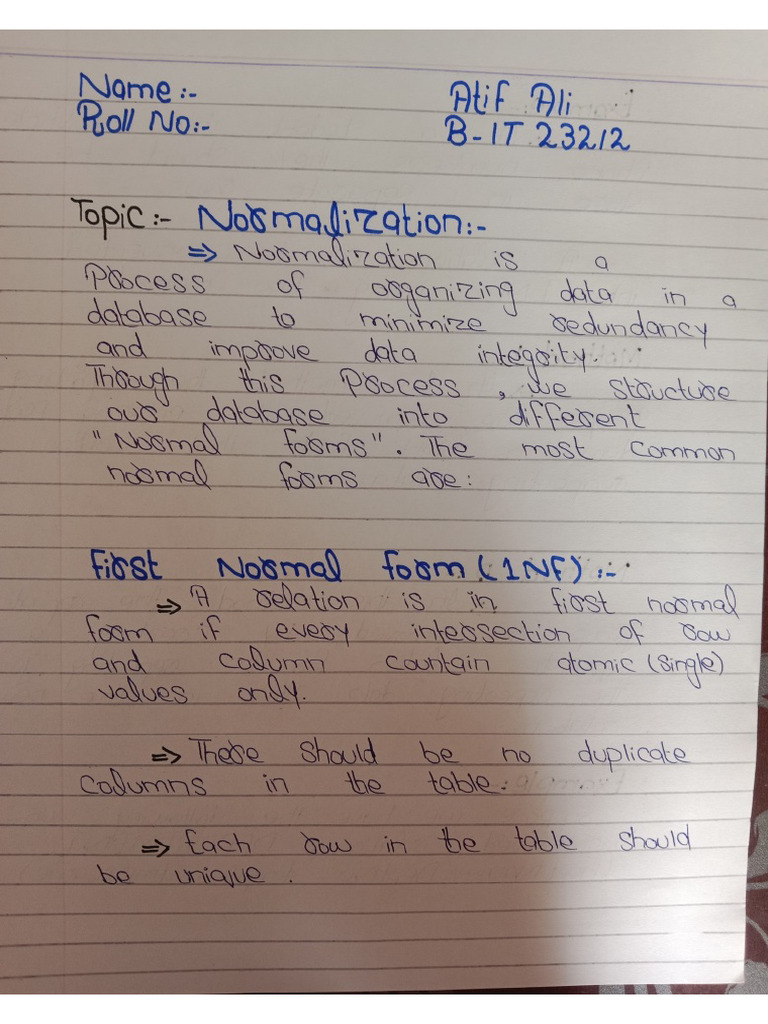 Name:- Atif Ali
Roll No:- B-IT 23212
Topic:- Normalization:-
⇒ Normalization is a
Process of organizing data in a
database to minimize redundancy
and improve data integrity.
Through this Process, we structure
our database into different
"Normal forms". The most common
normal forms are:
First Normal form (1NF):-
⇒ A relation is in first normal
form if every intersection of row
and column countain atomic (single)
values only.
⇒ There should be no duplicate
columns in the table.
⇒ Each row in the table should
be unique.